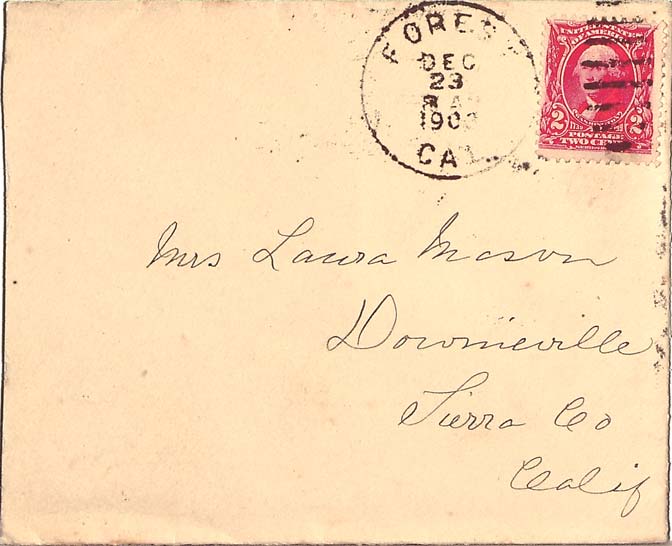 FOREST
DEC
23
190
CAL
UNITED STATES
OF AMERICA
2 2
POSTAGE
TWO CENTS
Mrs Laura Mason
Downieville
Sierra Co
Calif